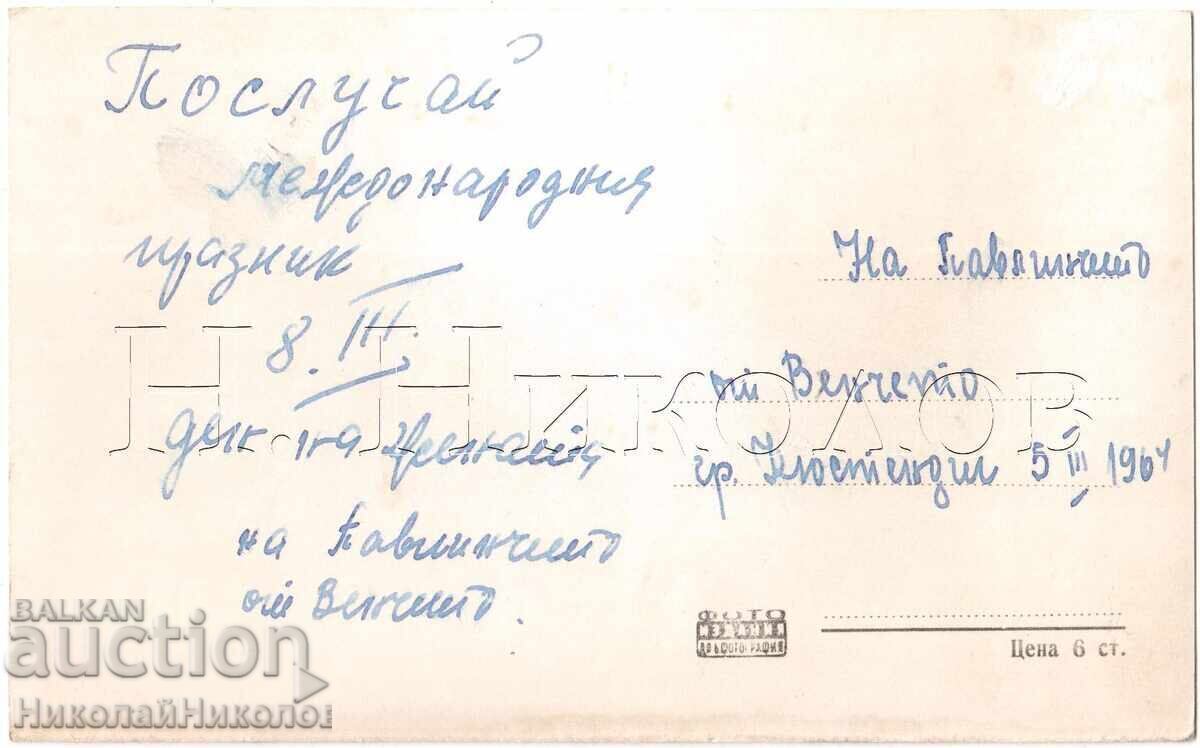 Послучай
международния
празник
8. III.
ден на жената
на Павлинчето
от Венчето.
На Павлинчето
от Венчето
гр. Кюстендил 5 III 1964
ФОТО
ДП БЪЛФОТОГРАФИЯ
Цена 6 ст.
Н. Николов
BALKAN
auction
НиколайНиколов